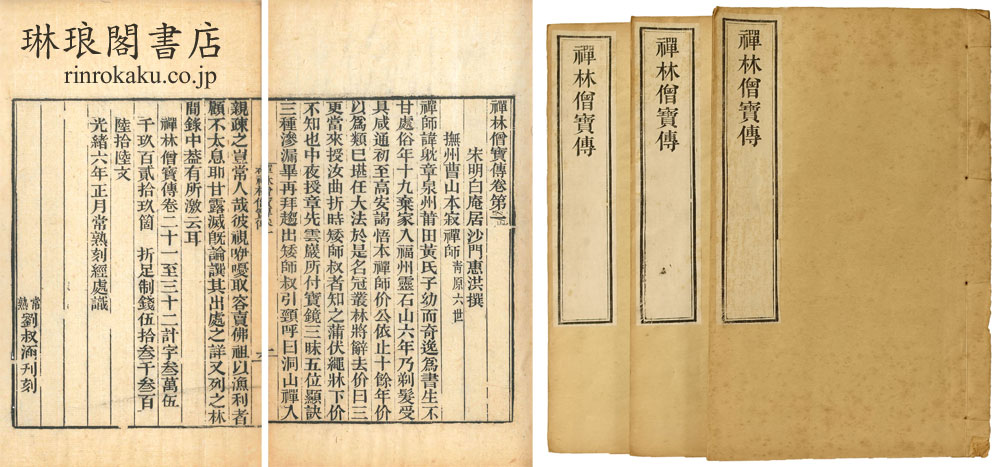 琳琅閣書店
rinrokaku.co.jp
禪林僧寶傳卷第一
宋明白庵居沙門惠洪撰
撫州曹山本寂禪師 青原六世
禪師諱躭章泉州莆田黃氏子幼而奇逸爲書生不
甘處俗年十九棄家入福州靈石山六年乃剃髮受
具咸通初至高安謁悟本禪師价公依止十餘年价
以爲類己堪任大法於是名冠叢林將辭去价曰三
更當來授汝曲折時矮師叔者知之蒲伏繩牀下价
不知也中夜授章先雲巖所付寶鏡三昧五位顯訣
三種滲漏畢再拜趨出矮師叔引頸呼曰洞山禪入
親疎之豈常人哉彼視咿嚘取容賣佛祖以漁利者
顧不太息耶甘露滅旣論譔其出處之詳又列之林
間錄中葢有所激云耳
禪林僧寶傳卷二十一至三十二計字叁萬伍
千玖百貳拾玖箇 折足制錢伍拾叁千叁百
陸拾陸文
光緒六年正月常熟刻經處識
常熟劉叔涵刋刻
禪林僧寶傳
禪林僧寶傳
禪林僧寶傳